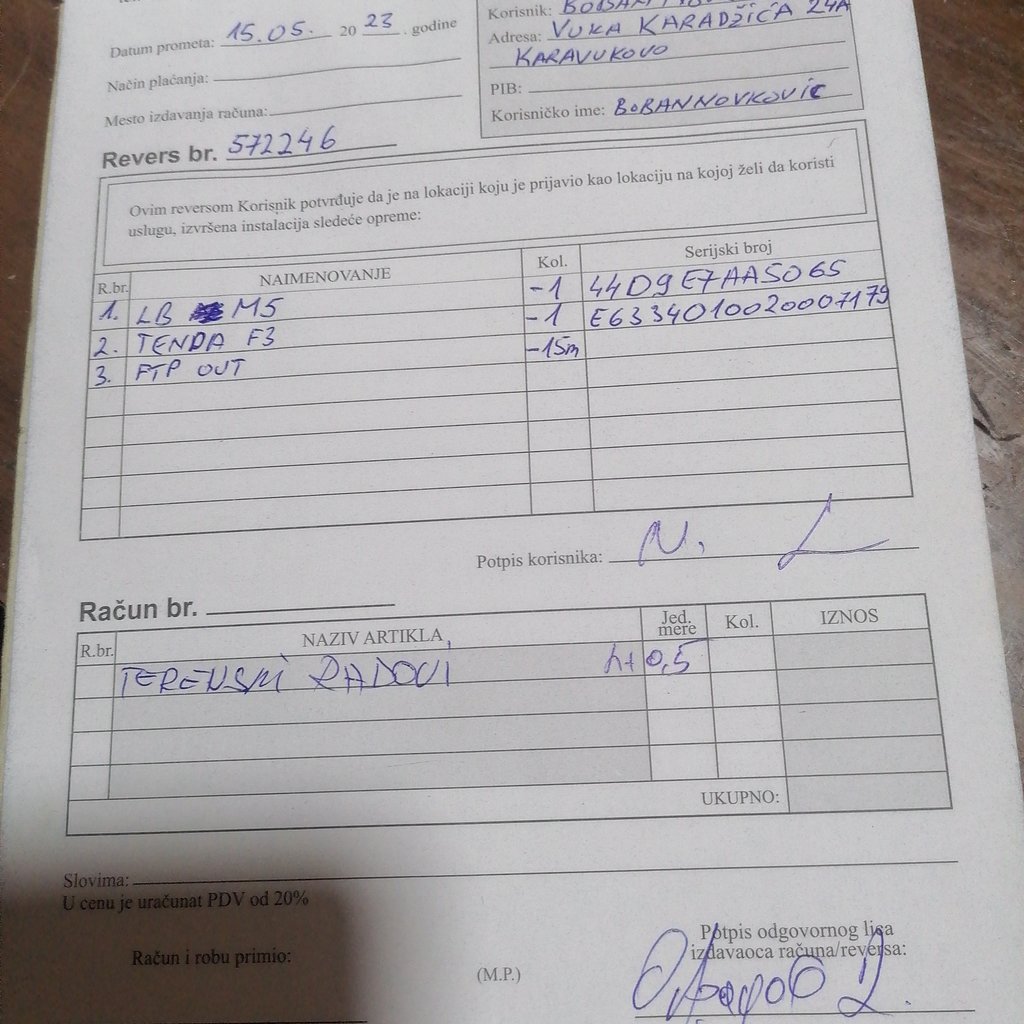 Korisnik: BOBAN
Datum prometa: 15.05. 2023. godine
Adresa: VUKA KARADŽIĆA 24A
KARAVUKOVO
Način plaćanja:
PIB:
Mesto izdavanja računa:
Korisničko ime: BOBANNOVKOVIC
Revers br. 572246
Ovim reversom Korisnik potvrđuje da je na lokaciji koju je prijavio kao lokaciju na kojoj želi da koristi
uslugu, izvršena instalacija sledeće opreme:
R.br. NAIMENOVANJE Kol. Serijski broj
1. LB M5 -1 44D9E7AA5065
2. TENDA F3 -1 E6334010020007179
3. FTP OUT -15m
Potpis korisnika: N.
Račun br.
R.br. NAZIV ARTIKLA Jed. mere Kol. IZNOS
TERENSKI RADOVI h+ 0,5
UKUPNO:
Slovima:
U cenu je uračunat PDV od 20%
Račun i robu primio:
(M.P.)
Potpis odgovornog lica
izdavaoca računa/reversa: